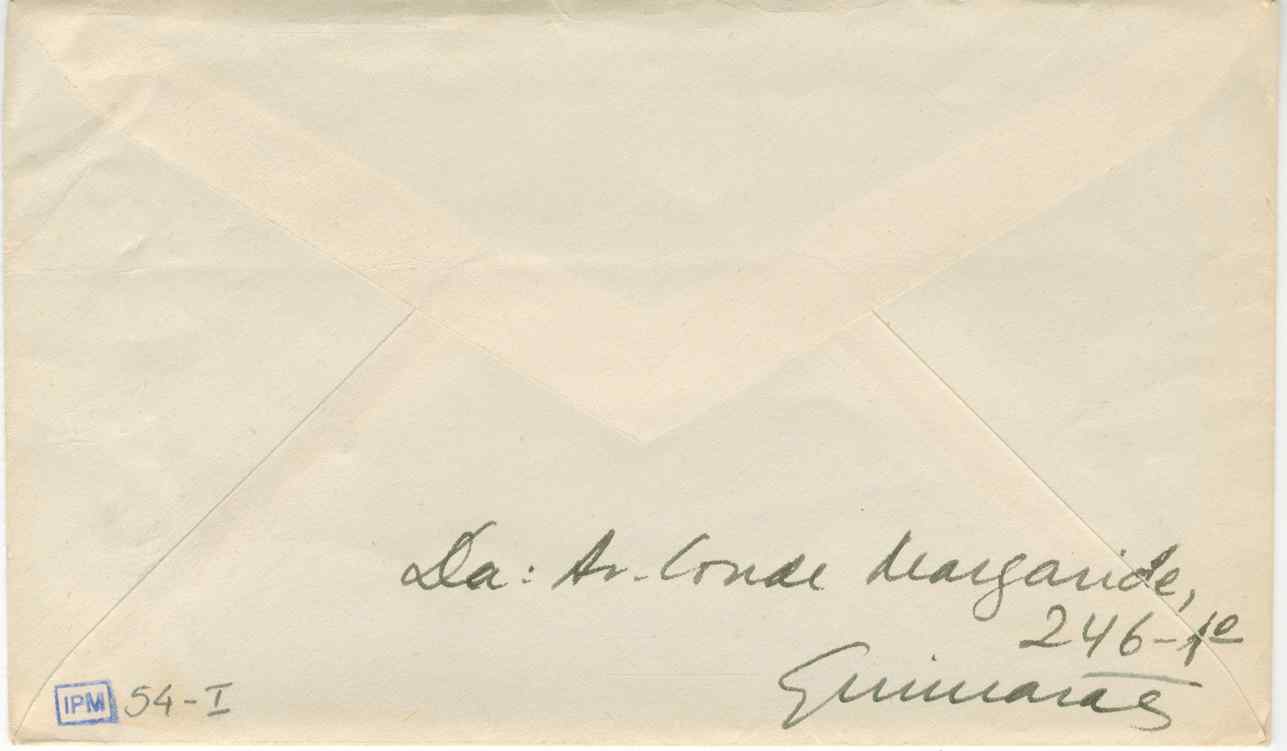 Da: Av. Conde Margaride,
246-1º
Guimarães
IPM 54-I